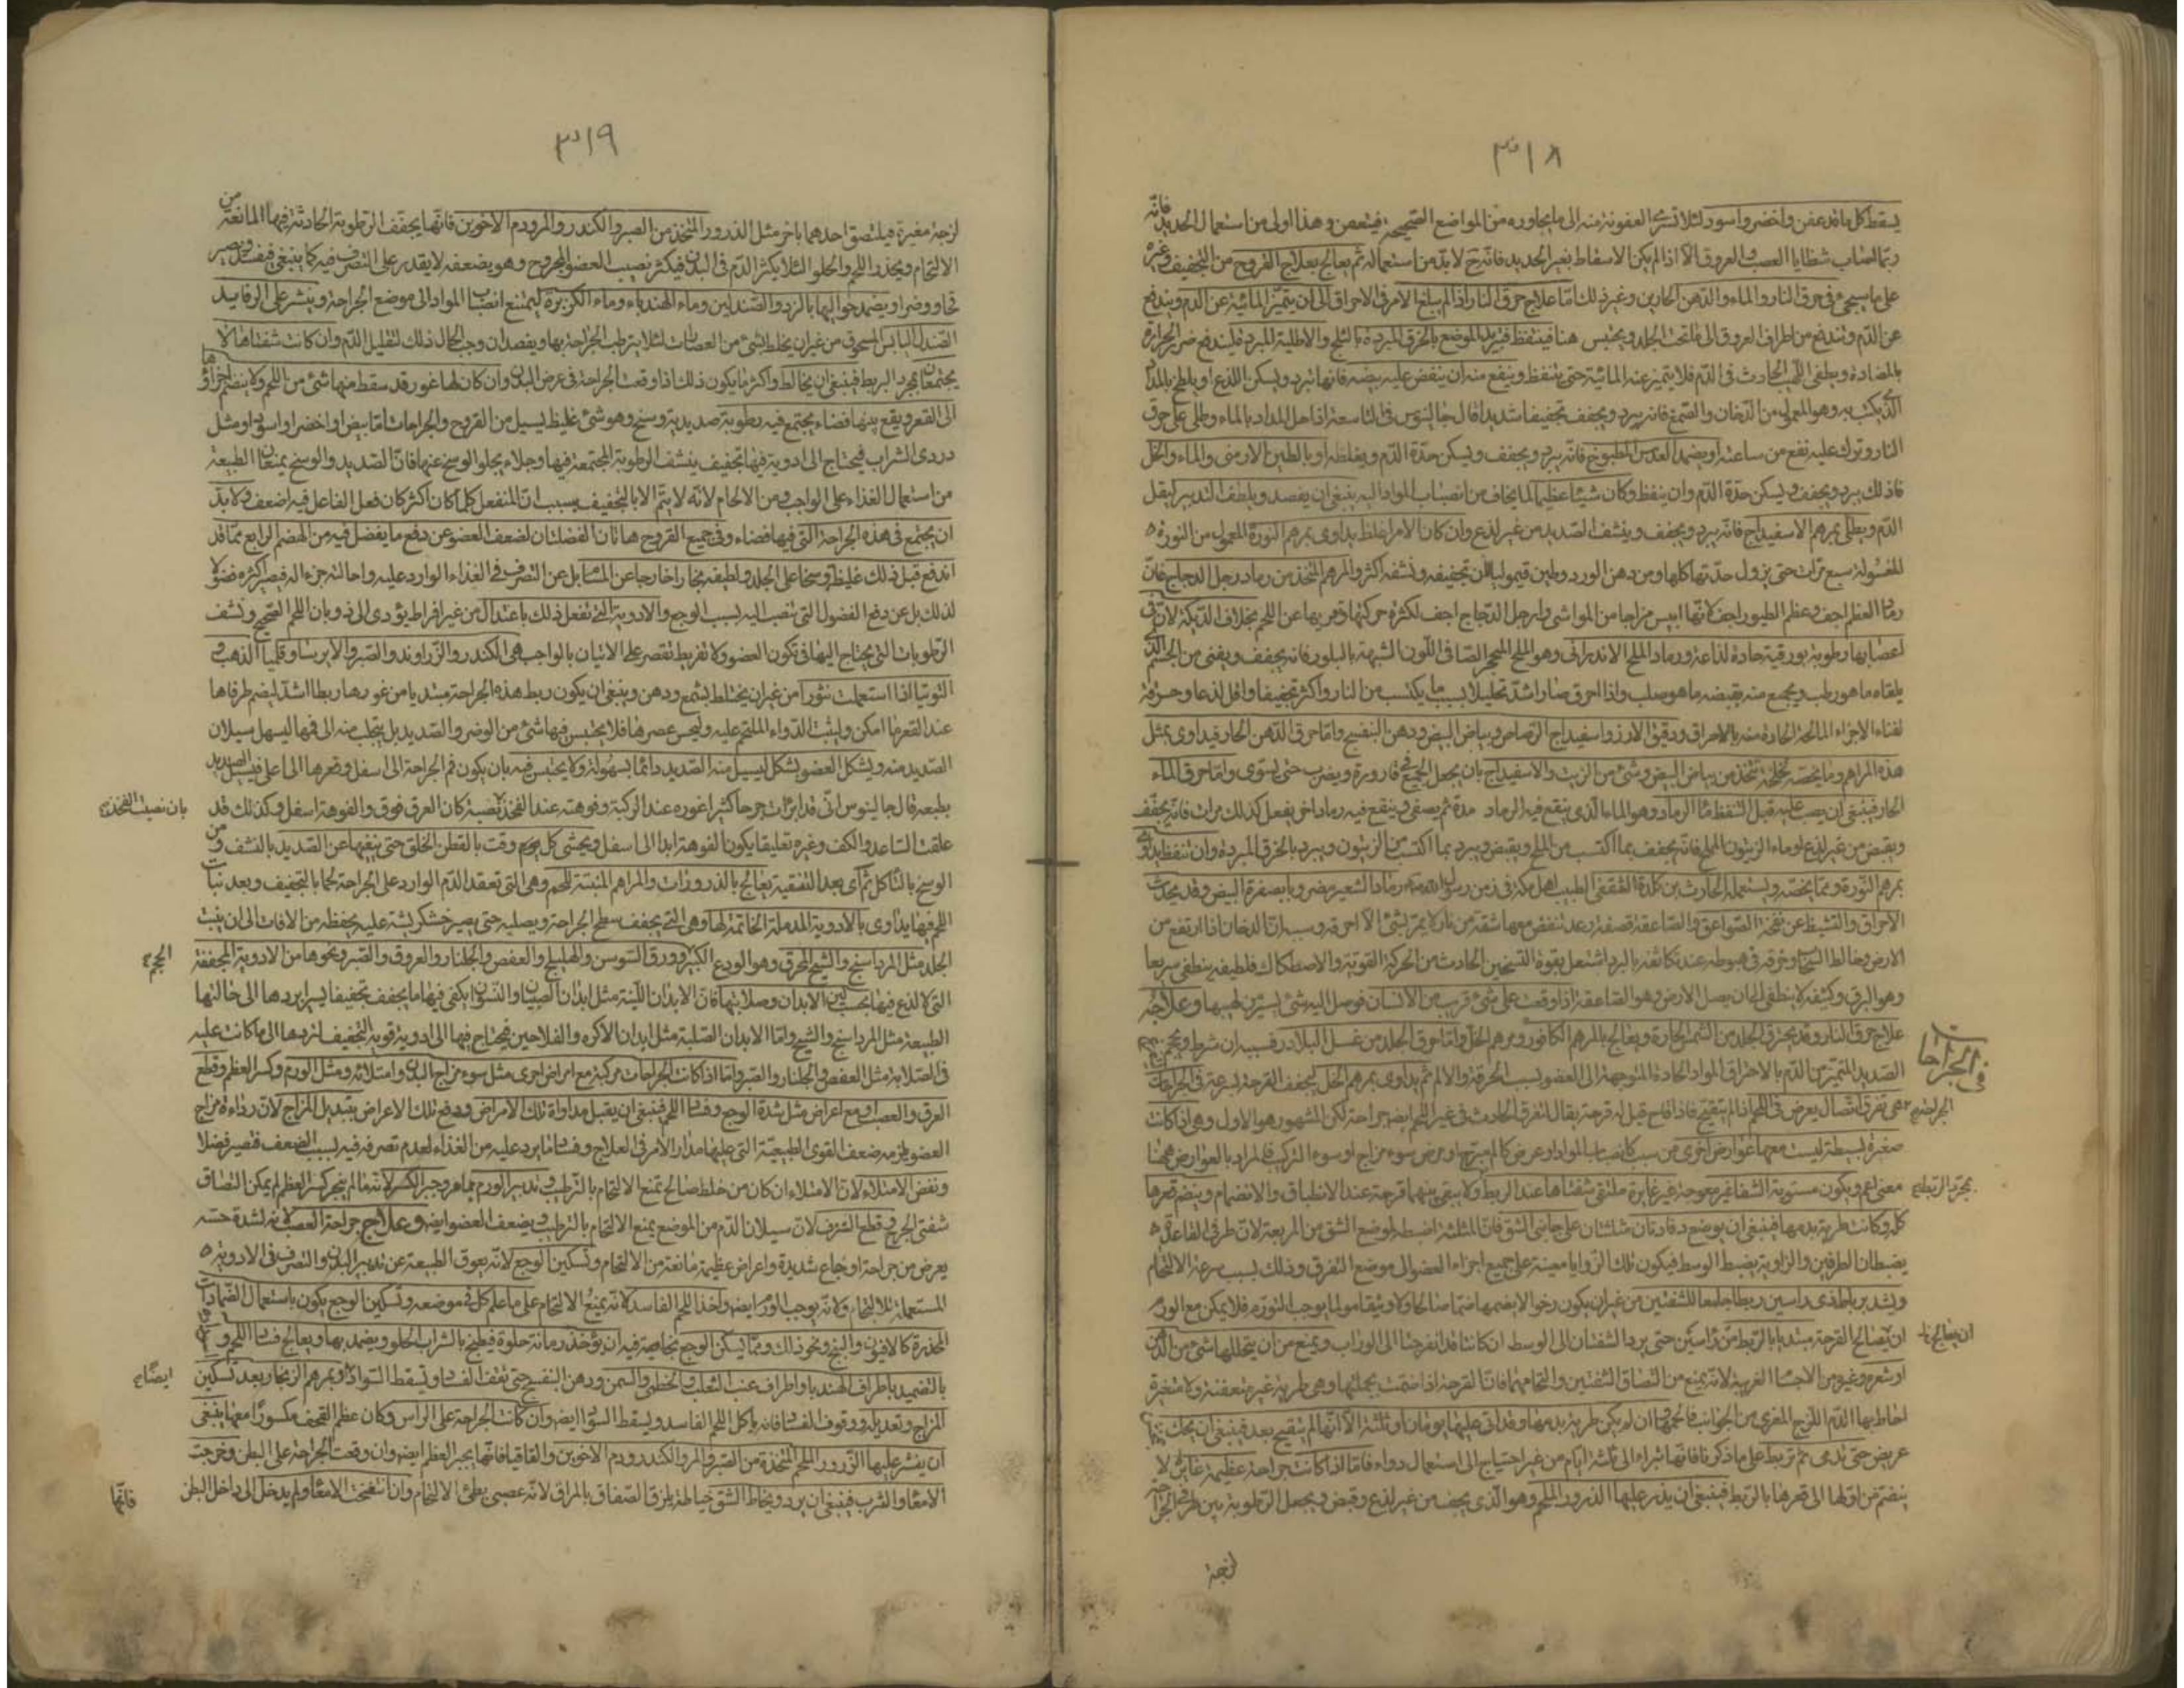 ٣١٨
يسقط كل ما قد عفن واخضر واسود لئلا تسرى العفونة منه الى ما يجاوره من المواضع الصحيحة فيتعفن وهذا اولى من استعمال الحديد فانه
ربما اصاب شظايا العصب والعروق الا اذا لم يكن الاسقاط بغير الحديد فانه ح لا بد من استعماله ثم يعالج بعلاج القروح من التجفيف وغيره
على ما سيجئ فى حرق النار والماء والدهن الحارين وغير ذلك اما علاج حرق النار اذا لم يبلغ الامر فى الاحراق الى ان يتميز المائية عن الدم ويندفع
عن الدم وتندفع من اطراف العروق الى ما تحت الجلد ويحتبس هنا فيتنفط فتبريد الموضع بالخرق المبردة بالثلج والاطلية المبردة ليندفع ضرر الحرارة
بالمضادة ويطفى اللهب الحادث فى الدم فلا يتميز عنه المائية حتى يتنفط وينفع منه ان ينفض عليه بيضه فانها تبرد ويسكن اللذع او يلطخ بالمداد
الذى يكتب به وهو المعمول من الدخان والصمغ فانه يبرد ويجفف تجفيفا شديدا قال جالينوس فى التاسعة اذا حل المداد بالماء وطلى على حرق
النار وترك عليه نفع من ساعته او يضمد العدس المطبوخ فانه يبرد ويجفف ويسكن حدة الدم ويغلظه او بالطين الارمنى والماء والخل
فان ذلك يبرد ويجفف ويسكن حدة الدم وان ينفط وكان شيئا عظيما لما يخاف من انصباب المواد اليه ينبغى ان يفصد ويلطف التدبير ليقل
الدم ويطلى بمرهم الاسفيداج فانه يبرد ويجفف وينشف الصديد من غير لذع وان كان الامر اغلظ يداوى بمرهم النورة المعمول من النورة
المغسولة سبع مرات حتى يزول حدتها كلها ومن دهن الورد وطين قيموليا لان تجفيفه ونشفه اكثر والمرهم المتخذ من رماد رجل الدجاج فان
رماد العظم اجف وعظم الطيور اجف لانها ايبس مزاجا من المواشى وارجل الدجاج اجف لكثرة حركتها وعريها عن اللحم بخلاف الديكة لان فى
اعصابها رطوبة بورقية حادة لذاعة ورماد الملح الاندرانى وهو الملح المتحجر الصافى اللون الشبيه بالبلور فانه يجفف ويفنى من الجسم الذى
يلقاه ما هو رطب ويجمع منه بقبضه ما هو صلب واذا احرق صار اشد تحليلا بسبب ما يكتسب من النار واكثر تجفيفا واقل لذعا وحرقة
لفناء الاجزاء المالحة الحارة منه بالاحراق ودقيق الارز واسفيداج الرصاص وبياض البيض ودهن البنفسج واما حرق الدهن الحار فيداوى بمثل
هذه المراهم وما يخصه لخلخة تتخذ من بياض البيض وشئ من الزيت والاسفيداج بان يجعل الجميع فى قارورة ويضرب حتى يستوى واما حرق الماء
الحار فينبغى ان يصب عليه قبل التنفط ماء الرماد وهو الماء الذى ينقع فيه الرماد مدة ثم يصفى وينقع فيه رماد اخر يفعل كذلك مرات فانه يجفف
ويقبض من غير لذع او ماء الزيتون المملح فانه يجفف بما اكتسب من الملح ويقبض ويبرد بما اكتسب من الزيتون ويبرد بالخرق المبردة وان تنفط يداوى
بمرهم النورة ومما يخصه ويستعمله الحارث بن كلدة الثقفى الطبيب اهل مكة فى زمن رسول الله رماد الشعير مضروبا بصفرة البيض وقد يحدث
الاحراق والتشيط عن نفحة الصواعق والصاعقة قصفة رعد تنقض معها شقة من نار لا يمر بشئ الا احرقه وسببه ان الدخان اذا ارتفع من
الارض وخالط السحاب وخرقه فى هبوطه عند تكاثفه بالبرد اشتعل بقوة التسخين الحادث من الحركة القوية والاصطكاك فلطيفه ينطفى سريعا
وهو البرق وكثيفه لا ينطفى الى ان يصل الارض وهو الصاعقة اذا وقعت على شئ قريب من الانسان فوصل اليه شئ يسير من لهيبها وعلاجه
علاج حرق النار وقد يحترق الجلد من الشمس الحارة ويعالج بالمرهم الكافور ومرهم الخل واما حرق الجلد من عسل البلادر فسبيله ان شرط ويحجم
الصديد المتميز من الدم بالاحتراق المواد الحادة المتوجهة الى العضو لسبب الحرقة والالم ثم يداوى بمرهم الخل ليجفف القرحة بسرعة فى الجراحات
فى الجراحات
الجراحة هى تفرق اتصال يعرض فى اللحم اذا لم يتقيح فاذا قاح قيل له قرحة يقال لتفرق الحادث فى غير اللحم ايضا جراحة لكن المشهور هو الاول وهى اذا كانت
صغيرة بسيطة ليست معها عوارض اخرى من سبب كانصباب المواد او عرض كالم مبرح او مرض سوء مزاج او سوء التركيب فالمراد بالعوارض ههنا
معنى اعم ويكون مستوية الشفا غير معوجة غير غايرة ملتقى شفتاها عند الربط ولا يبقى بينهما فرجة عند الانطباق والانضمام وينضم قعرها
بمجرد الربط صح
كله وكانت طرية بدمها فينبغى ان يوضع رفادتان مثلثتان على جانبى الشق فان المثلثة اضبط لموضع الشق من المربعة لان طرفى القاعدة
يضبطان الطرفين والزاوية يضبط الوسط فيكون تلك الزوايا معينة على جميع اجزاء العضو الى موضع التفرق وذلك لسبب سرعة الالتحام
ويشد برباط ذى راسين ربطا جامعا للشفتين من غير ان يكون رخوا لا يضمها ضما صالحا ولا وثيقا مولما يوجب التورم فلا يمكن مع الورم
ان يعالج
ان يصالح القرحة مبتديا بالربط من راسين حتى يرد الشفتان الى الوسط ان كانتا قد انفرجتا الى الوراب ويمنع من ان يتخللها شئ من الدهن
او شعر وغيره من الاجسام الغريبة لانه يمنع من التصاق الشفتين والتحامهما فان القرحة اذا ضمت بجملتها وهى طرية غير متعفنة ولا متغيرة
احاط بها الدم اللزج المغرى من الجوانب فالحمها وان لم يكن طرية بدمها وقد اتى عليها يومان او ثلثة الا انها لم يتقيح بعد فينبغى ان يحك
عريض حتى تدمى ثم تربط على ما ذكرنا فانها تبراء الى ثلثة ايام من غير احتياج الى استعمال دواء فاما اذا كانت جراحة عظيمة غايرة لا
ينضم من اولها الى قعرها بالربط فينبغى ان يذر عليها الذرور الملحم وهو الذى يجفف من غير لذع وقبض ويجعل الرطوبة بين طرفى الجراحة
لزجة
٣١٩
لزجة مغرية فيلتصق احدهما بالاخر مثل الذرور المتخذ من الصبر والكندر والمر ودم الاخوين فانها يجفف الرطوبة الحادثة فيها المانعة من
الالتحام ويحذر اللحم والحلو لئلا يكثر الدم فى البدن فيكثر نصيب العضو المجروح وهو بضعفه لا يقدر على التصرف فيه كما ينبغى فيفسد ويصير
قحا ووضرا ويضمد حواليها بالزرد والصندلين وماء الهندباء وماء الكزبرة ليمتنع انصباب المواد الى موضع الجراحة وينشر على الرفايد
الصندل اليابس المسحوق من غير ان يخلط بشئ من العصارات لئلا يترطب الجراحة بها ويفصد ان وجب الحال ذلك لتقليل الدم وان كانت شفتاها لا
يجتمعان بمجرد الربط فينبغى ان يخالط واكثر ما يكون ذلك اذا وقعت الجراحة فى عرض البدن وان كان لها غور قد سقط منها شئ من اللحم ولا ينضم اجزاؤها
الى القعر ويقع بينها فضاء يجتمع فيه رطوبة صديدية وسخ وهو شئ غليظ يسيل من القروح والجراحات اما ابيض او اخضر او اسود او مثل
دردى الشراب فيحتاج الى ادوية فيها تجفيف ينشف الرطوبة المجتمعة فيها وجلاء يجلو الوسخ عنها فان الصديد والوسخ يمنعان الطبيعة
من استعمال الغذاء على الواجب ومن الالحام لانه لا يتم الا بالتجفيف بسبب ان المنفعل كلما كان اكثر كان فعل الفاعل فيه اضعف ولا بد
ان يجتمع فى هذه الجراحة التى فيها فضاء وفى جميع القروح هاتان الفضلتان لضعف العضو عن دفع ما يفضل فيه من الهضم الرابع مما قد
اندفع قبل ذلك غليظه وسخا على الجلد ولطيفه بخارا خارجا عن المسام بل عن التصرف فى الغذاء الوارد عليه واحالته جزءا له فيصير اكثره فضولا
لذلك بل عن دفع الفضول التى تنصب اليه لسبب الوجع والادوية التى تفعل ذلك باعتدال من غير افراط يؤدى الى ذوبان اللحم الصحيح ونشف
الرطوبات التى يحتاج اليها فى تكون العضو ولا تفريط تقصر على الاتيان بالواجب هى الكندر والزراوند والصبر والايرسا وقليميا الذهب و
التوتيا اذا استعملت نثورا من غير ان يختلط بشمع ودهن وينبغى ان يكون ربط هذه الجراحة مبتديا من غورها ربطا اشد لينضم طرفاها
عند القعر ما امكن وليثبت الدواء الملتحم عليه وليحسن عصرها فلا يحتبس فيها شئ من الوضر والصديد بل يتحلب منه الى فمها ليسهل سيلان
الصديد منه ويشكل العضو بشكل ليسيل منه الصديد دائما بسهولة ولا يحتبس فيه بان يكون فم الجراحة الى اسفل وقعرها الى اعلى فيسيل الصديد
بطبعه قال جالينوس انى قد ابرأت جرحا كثيرا غوره عند الركبة وفوهته عند الفخذ نصبة كان العرق فوق والفوهة اسفل وكذلك قد
بان نصبت الفخذ
علقت الساعد والكف وغيره تعليقا يكون الفوهة ابدا الى اسفل ويحشى كل يوم وقت بالقطن الخلق حتى ينقيها عن الصديد بالنشف ومن
الوسخ بالتاكل ثم اى بعد التنقية يعالج بالذرورات والمراهم المنبتة للحم وهى التى تعقد الدم الوارد على الجراحة لحما بالتجفيف وبعد نبات
اللحم فيها يداوى بالادوية المدملة الخاتمة لها وهى التى يجفف سطح الجراحة ويصلبه حتى يصير خشكريشة عليه يحفظه من الافات الى ان ينبت
الجلد مثل المرداسنج والشيح المحرق وهو الودع الكبير وورق السوسن والهليلج والعفص والجلنار والعروق والصبر ونحوها من الادوية المجففة
التى لا لذع فيها بحسب لين الابدان وصلابتها فان الابدان اللينة مثل ابدان الصبيان والنسوان يكفى فيها ما يجفف تجفيفا يسيرا يردها الى حالتها
الطبيعية مثل المرداسنج والشيح واما الابدان الصلبة مثل ابدان الاكرة والفلاحين فيحتاج فيها الى ادوية قوية التجفيف لتردها الى ما كانت عليه
فى الصلابة مثل العفص والجلنار والصبر واما اذا كانت الجراحات مركبة مع امراض اخرى مثل سوء مزاج البدن وامتلائه ومثل الورم وكسر العظم وقطع
العرق والعصب او مع اعراض مثل شدة الوجع وفساد اللحم فينبغى ان يقبل مداواة تلك الامراض ودفع تلك الاعراض بتبديل المزاج لان رداءة مزاج
العضو يلزمه ضعف القوى الطبيعية التى عليها مدار الامر فى العلاج وفساد ما يرد عليه من الغذاء لعدم تصرفه فيه لسبب الضعف فتصير فضلا
ونفض الامتلاء لان الامتلاء ان كان من خلط صالح تمنع الالتحام بالترطيب وتدبير الورم بما مر وجبر الكسر لانه ما لم ينجبر كسر العظم لم يمكن التصاق
شفتى الجرح وقطع النزف لان سيلان الدم من الموضع يمنع الالتحام بالترطيب ويضعف العضو ايضا وعلاج جراحة العصب لانه لشدة حسه
يعرض من جراحته اوجاع شديدة واعراض عظيمة مانعة من الالتحام وتسكين الوجع لانه يعوق الطبيعة عن تدبير البدن والتصرف فى الادوية
المستعملة للالتحام ولانه يوجب الورم ايضا واخذ اللحم الفاسد لانه يمنع الالتحام على ما علم كل فى موضعه وتسكين الوجع يكون باستعمال الضمادات
المخدرة كالافيون والبنج ونحو ذلك ومما يسكن الوجع بخاصية فيه ان يؤخذ رمانة حلوة فيطبخ بالشراب الحلو ويضمد بها ويعالج فساد اللحم و
بالتضميد باطراف الهندبا واطراف عنب الثعلب والخطمى والسمن ودهن البنفسج حتى تقف الفساد وتسقط السواد وبمرهم الزنجار بعد تسكين
ايضا
المزاج وتعديله ووقوف الفساد فانه ياكل اللحم الفاسد ويسقط السواد ايضا وان كانت الجراحة على الراس وكان عظم القحف مكسورا معها ينبغى
ان ينشر عليها الذرور الملحم المتخذة من الصبر والمر والكندر ودم الاخوين والقاقيا فانها يجبر العظم ايضا وان وقعت الجراحة على البطن وخرجت
الامعاء والثرب فينبغى ان يرد ويخاط الشق خياطة يلزق الصفاق بالمراق لانه عصبى بطئ الالتحام وان انتفخت الامعاء ولم يدخل الى داخل البطن
فانها